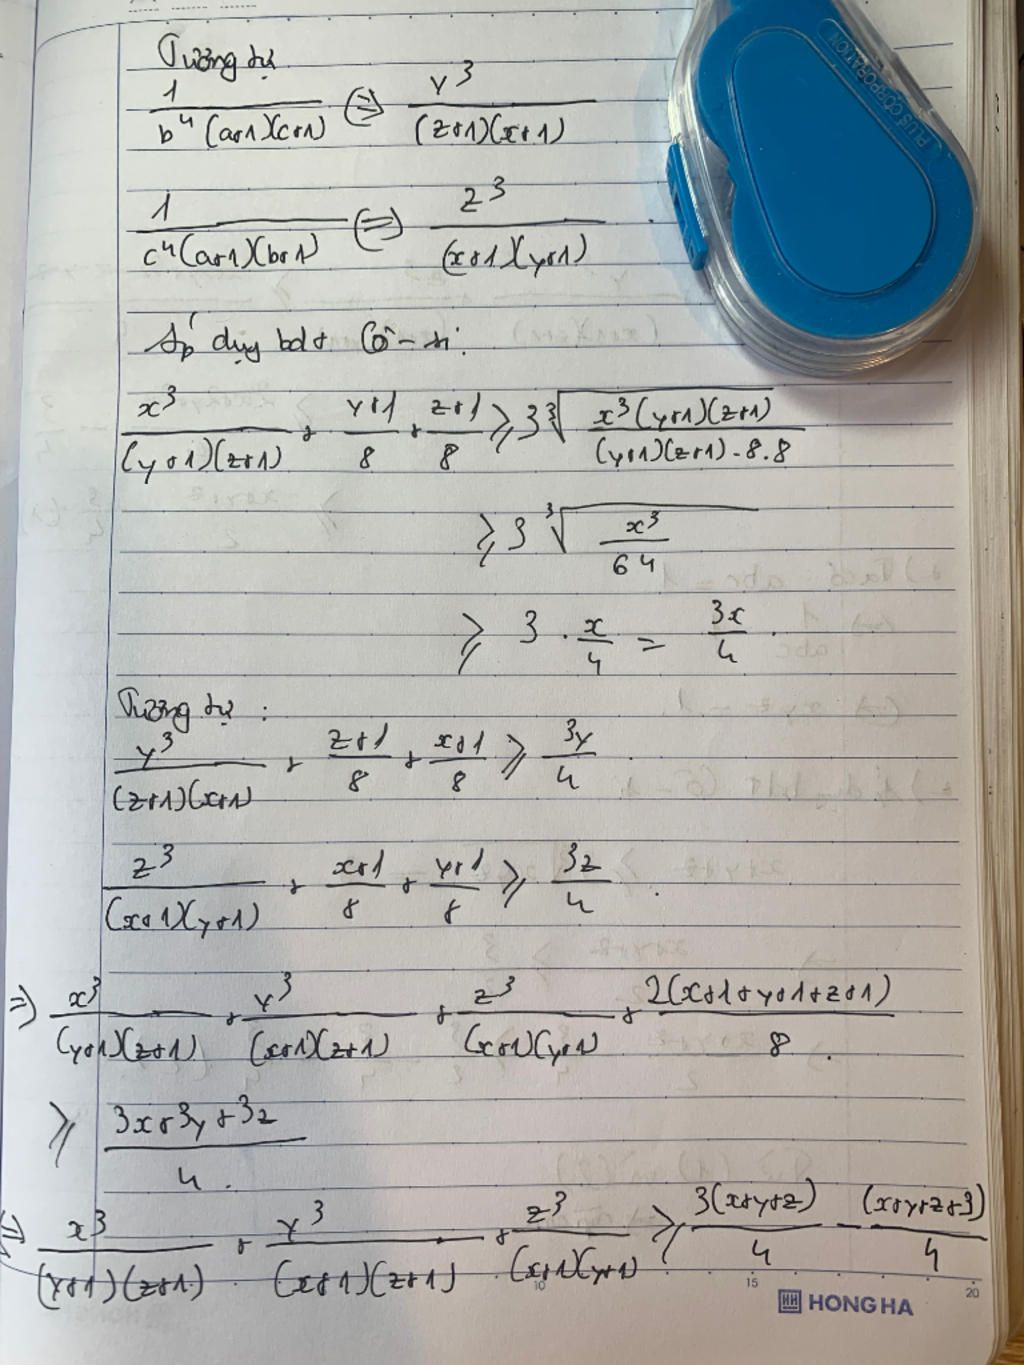 Tương tự
1/(b⁴(a+1)(c+1)) ⇔ y³/((z+1)(x+1))
PLUS CORPORATION
1/(c⁴(a+1)(b+1)) ⇔ z³/((x+1)(y+1))
Áp dụng bđt Cô-si:
x³/((y+1)(z+1)) + (y+1)/8 + (z+1)/8 ⩾ 3∛(x³(y+1)(z+1)/((y+1)(z+1).8.8))
⩾ 3∛(x³/64)
⩾ 3 . x/4 = 3x/4 .
Tương tự :
y³/((z+1)(x+1)) + (z+1)/8 + (x+1)/8 ⩾ 3y/4 .
z³/((x+1)(y+1)) + (x+1)/8 + (y+1)/8 ⩾ 3z/4 .
⇒ x³/((y+1)(z+1)) + y³/((x+1)(z+1)) + z³/((x+1)(y+1)) + 2(x+1+y+1+z+1)/8 .
⩾ (3x+3y+3z)/4 .
⇒ x³/((y+1)(z+1)) + y³/((x+1)(z+1)) + z³/((x+1)(y+1)) ⩾ 3(x+y+z)/4 - (x+y+z+3)/4
10 15 20
HONG HA